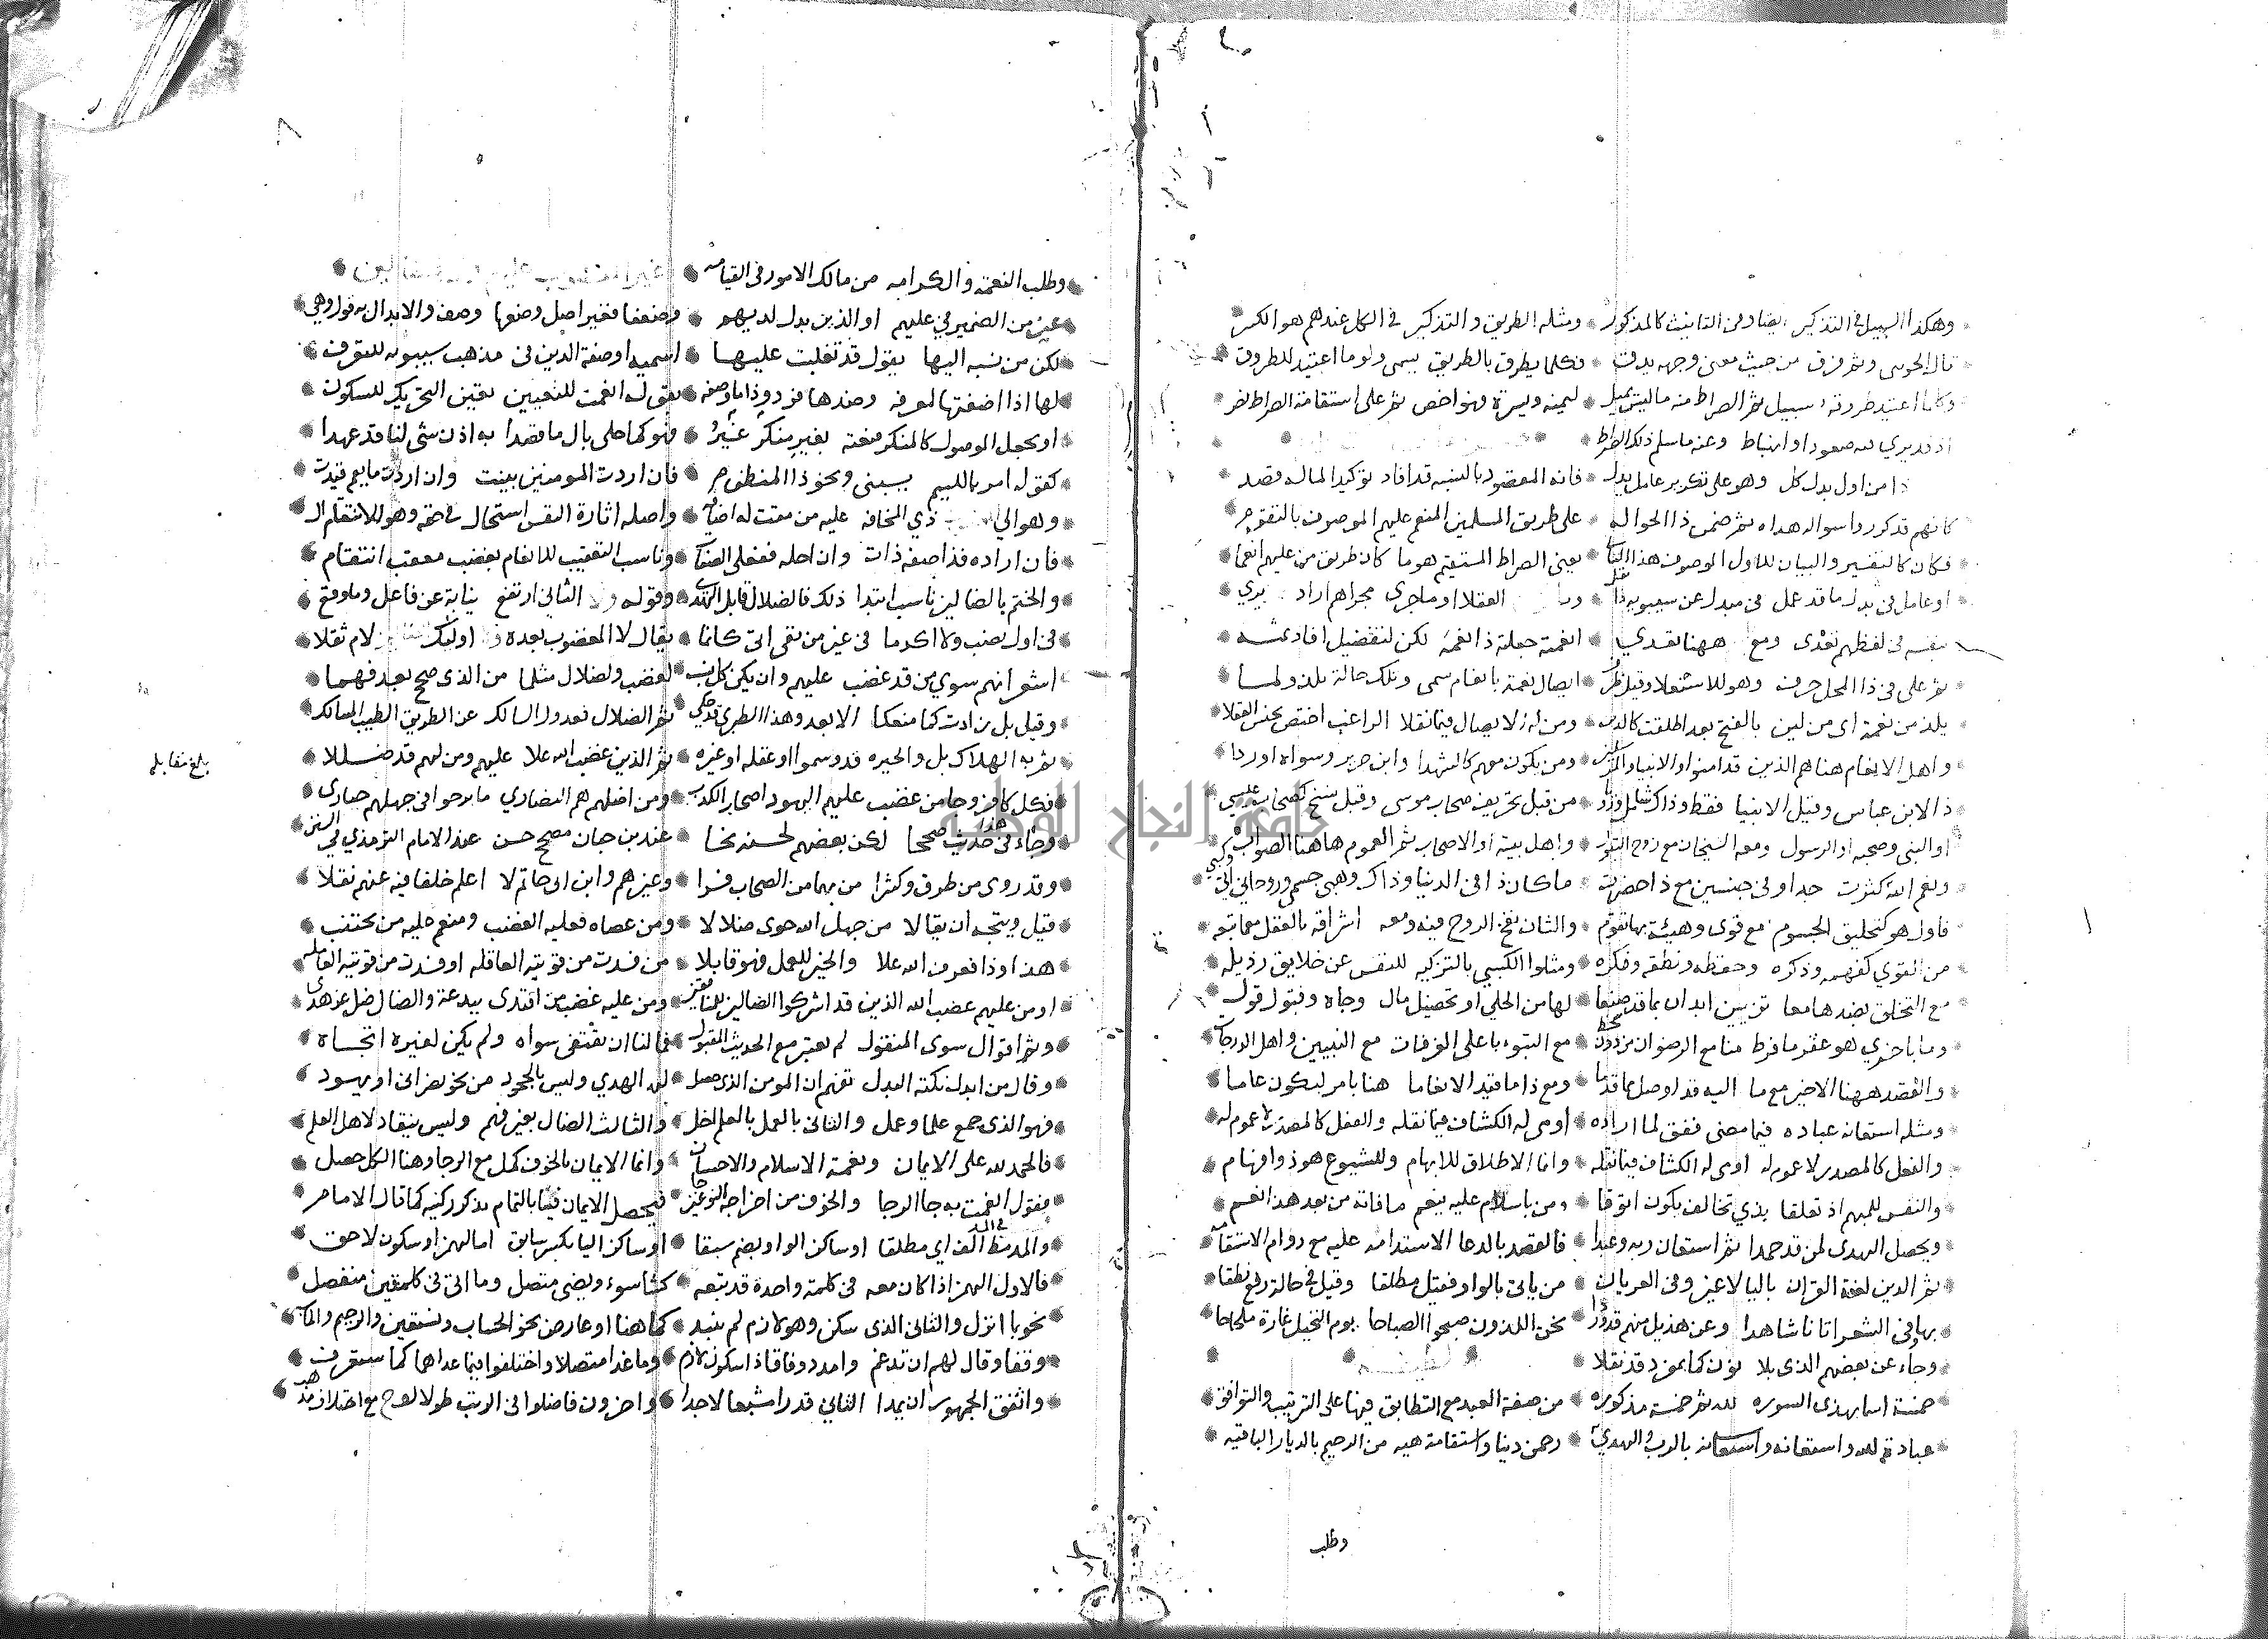 وهكذا السبيل في التذكير ايضا وفي التانيث كالمذكور * ومثله الطريق والتذكير في الكل عندهم هو الكثير
قال الخوبي وثم فرق من حيث معنى وجهه يدق * فكلما يطرق بالطريق يسمى ولو ما اعتيد للطروق
وكلما اعتيد طروقه سبيل ثم الصراط منه ما ليس يميل * ليمنه ويسرة فهو اخص ثم على استقامة الصراط نص
اذ قد يري له صعود او انهباط وعنه ما سلم ذلك الصراط
ذا من اول بدل كل وهو على تكرير عامل يدل * فانه المقصود بالنسبه قد افاد توكيدا لما له قصد
كانهم قد كرروا سواله هداه ثم ضمن ذا الحواله * على طريق المسلمين المنعم عليهم الموصوف بالتقوم
فكان كالتفسير والبيان للاول الموصوف هذا الثاني * يعني الصراط المستقيم هو ما كان طريق من عليهم انعما
او عامل في بدل ما قد عمل في مبدل عن سيبويه ذا نقل * العقلا او ما جرى مجراهم اراد يري
بنفسه في لفظهم تعدى ومع ههنا تعدي * انعمته جعلته ذا نعمه لكن لتفضيل افاد ثمه
ثم على في ذا المحل حرف وهو للاستعلا وقيل ظرف * ايصال نعمة بانعام سمى وتلك حالة تلذ ولما
يلذ من نعمة اى من لين بالفتح بعد اطلقت كالدين * ومن له الايصال فيما نقلا الراغب اختص بجنس العقلا
واهل الانعام هنا هم الذين قد امنوا او الانبياء والمرسلين * ومن يكون معهم كالشهدا وابن جرير وسواه اوردا
ذا لابن عباس وقيل الانبيا فقط وذاك شامل * من قبل تحريف صحاب موسى وقيل نسخ لصحاب عيسى
او النبي وصحبه او الرسول ومعه الشيخان مع زوج البتول * واهل بيته او الاصحاب ثم العموم هاهنا الصواب
ونعم الله كثرت حدا وفي جنسين مع ذا حصرت * ما كان ذا في الدنيا وذاك وهبي جسمي وروحاني اتى وكسبي
فاول هو كتخليق الجسوم مع قوى وهيئة بها تقوم * والثان نفخ الروح فيه ومعه اشراقه بالعقل معا تبعه
من القوي كفهمه وذكره وحفظه ونطقه وفكره * ومثلوا الكسبي بالتزكيه للنفس عن خلايق رذيله
مع التخلق بضدها معا تزيين ابدان بما قد صنعا * لها من الحلي او تحصيل مال وجاه وقبول قول
وما باخرى هو غفر ما فرط منا مع الرضوان من دون سخط * مع التبوء باعلى الغرفات مع النبيين واهل الدرجات
والقصد ههنا الاخير مع ما اليه قد اوصل مما قدما * ومع ذا ما قيد الانعاما هنا بامر ليكون عاما
ومثله استعانه عباده فيما مضى ففق لما اراده * اومى له الكشاف فيما نقله والفعل كالمصدر لا عموم له
والفعل كالمصدر لا عموم له اومى له الكشاف فيما نقله * وانما الاطلاق للابهام وللشيوع هو ذو افهام
والنفس للمبهم اذ تعلقا بذي تخالف يكون اتوقا * ومن باسلام عليه ينعم ما فاته من بعد هذا انعم
ويحصل الهدى لمن قد حمدا ثم استعان ربه وعبدا * فالقصد بالدعا الاستدامه عليه مع دوام الاستقامه
ثم الذين لغة القران باليا لا غير وفي العريان * من ياتي بالواو فقيل مطلقا وقيل في حالة رفع نطقا
بها وفي الشعر اتانا شاهدا وعن هذيل منهم قد وردا * نحن اللذون صبحوا الصباحا يوم النخيل غارة ملحاحا
وجاء عن بعضهم الذي بلا نون كما بمفرد قد نقلا *
خمسة اسما بهذى السوره لله ثم خمسة مذكوره * من صفة العبد مع التطابق فيها على الترتيب والتوافق
عبادة لله واستعانه واستعانه بالرب والهدي * رحمن دنيا واستقامة هيه من الرحيم بالديار الباقيه
وطلب
وطلب النعمة والكرامه من مالك الامور في القيامه *
غير من الضمير في عليهم او الذين بدل لديهم * وضعفا فغير اصل وضعها وصف والابدال به قول وهى
لكن من نسبه اليها يقول قد تغلبت عليها * اسميه او صفة الذين في مذهب سيبويه للتعرف
لها اذا اضفتها لمعرفه وضدها فرد وذا ما وصفه * بقوله انعمت للتعيين تعين التحريك للسكون
او يجعل الموصول كالمنكر فنعته بغير منكر غير * فهو كما حلى بال ما قصدا به اذ ن شى لنا قد عهدا
كقوله امر باللييم يسبني ونحو ذا المنظوم * فان اردت المومنين بينت وان اردت ما يعم قيدت
وهو الي ذي المخافه عليه من مقت له اضافه * واصله اثارة النفس استحال في حقه وهو للانتقام ال
فان اراده فذا صفه ذات وان احله ففعلي الصفات * وناسب التعقيب للانعام بغضب معقب انتقام
والختم بالضالين ناسب ابتدا ذلك فالضلال قابل الهدى * وقوله الثاني ارتفع نيابة عن فاعل وما وقع
في اول بنصب ولا اكد ما في غير من نفى اتى كانما * يقال لا المغضوب بعده اوليك لام ثقلا
اشعر انهم سوي من قد غضب عليهم وان يكن كل نسب * لغضب ولضلال مثلما من الذي صح بعد فهما
وقيل بل زادت كما منعكا الا بعد وهذا الطبري قد حكى * ثم الضلال لعدول السالك عن الطريق الطيب المسالك
ثم به الهلاك بل والحيره قد وسموا او غفله او غيره * ثم الذين غضب الله علا عليهم ومن لهم قد ضللا
فكل كافر وجا من غضب عليهم اليهود اصحاب الكذب * ومن اضلهم هم النصاري ما برحوا في جهلهم حيارى
وجاء في هذا حديث صححا لكن بعضهم لحسنه نحا * عند بن حبان مصحح حسن عند الامام الترمذي في السنن
وقد روى من طرق وكثرا من بهما من الصحاب فسرا * وغيرهم وابن ابى حاتم لا اعلم خلفا فيه عنهم نقلا
قيل ويتجه ان يقالا من جهل الله حوى ضلالا * ومن عصاه فعليه الغضب ومنعم عليه من يجتنب
هذا وذا فعرف الله علا والخير للعمل فهو قابلا * من فسدت من قوتيه العاقله او فسدت من قوتيه العامله
او من عليهم غضب الله الذين قد اشركوا الضالين * ومن عليه غضب من اقتدى ببدعة والضال ضل عن هدى
وثم اقوال سوى المنقول لم تعتبر مع الحديث المقبول * فما لنا ان نقتفى سواه ولم يكن لغيره اتجاه
وقال من ابدل نكتة البدل تفهم ان المومن الذي حصل * له الهدي وليس بالجحود من نحو نصراني او يهودي
فهو الذي جمع علما وعمل والثاني بالعمل بالعلم اخل * والثالث الضال بغير فهم وليس ينقاد لاهل العلم
فالحمد لله على الايمان ونعمة الاسلام والاحسان * وانما الايمان بالخوف كمل مع الرجا وهنا الكل حصل
فقول انعمت به جا الرجا والخوف من اخراجه الغير جا * فيحصل الايمان فينا بالتمام بذكر ركنيه كما قال الامام
والمد في الف اي مطلقا او ساكن الواو بضم سبقا * او ساكن اليا بكسر سابق اما لهمز او سكون لاحق
فالاول الهمز اذا كان معه في كلمة واحدة قد تبعه * كشا سوء ويضى متصل وما اتى في كلمتين منفصل
نحو يا انزل والثاني الذى سكن وهو لازم لم ينبذ * كما هنا او عارض نحو الحساب ونستعين والرحيم والمآب
وقفا وقال لهم ان تدغم وامدد وفاقا ذا سكون لازم * وما غدا متصلا واختلفوا فيما عداهما كما ستعرف
واتفق الجمهور ان يمدا الثاني قدرا مشبعا لا جدا * واخرون فاضلوا في الرتب طولا لورش مع
بلغ مقابله